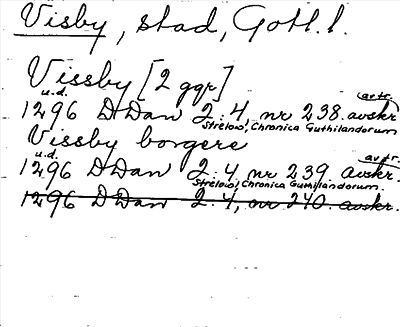 Visby, stad, Gotl. l.
Vissby [2 ggr]
u.d. avtr.
1296 DDan 2:4, nr 238. avskr.
Strelow, Chronica Guthilandorum
Vissby borgere
u.d. avtr.
1296 DDan 2:4 nr 239. avskr.
Strelow, Chronica Guthilandorum.
1296 DDan 2:4, nr 240. avskr.